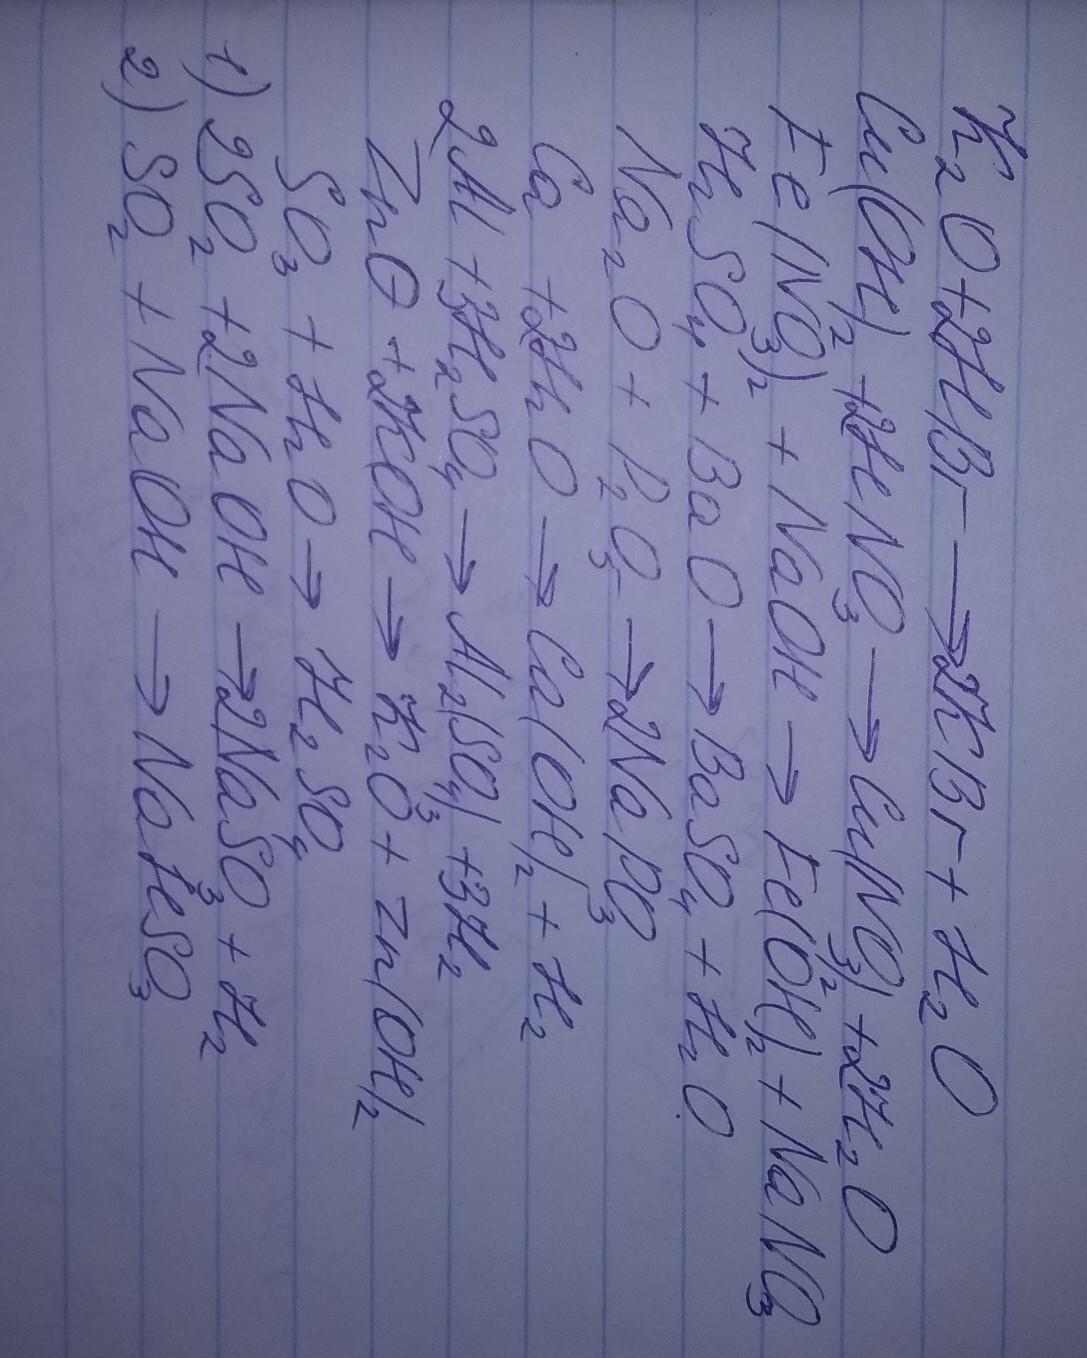 K₂O+2HBr→2KBr+H₂O
Cu(OH)₂+2HNO₃→Cu(NO₃)₂+2H₂O
Fe(NO₃)₂+NaOH→Fe(OH)₂+NaNO₃
H₂SO₄+BaO→BaSO₄+H₂O
Na₂O+P₂O₅→2NaPO₃
Ca+2H₂O→Ca(OH)₂+H₂
2Al+3H₂SO₄→Al₂(SO₄)₃+3H₂
ZnO+2KOH→K₂O+Zn(OH)₂
SO₃+H₂O→H₂SO₄
1) 2SO₂+2NaOH→2NaSO₃+H₂
2) SO₂+NaOH→NaHSO₃